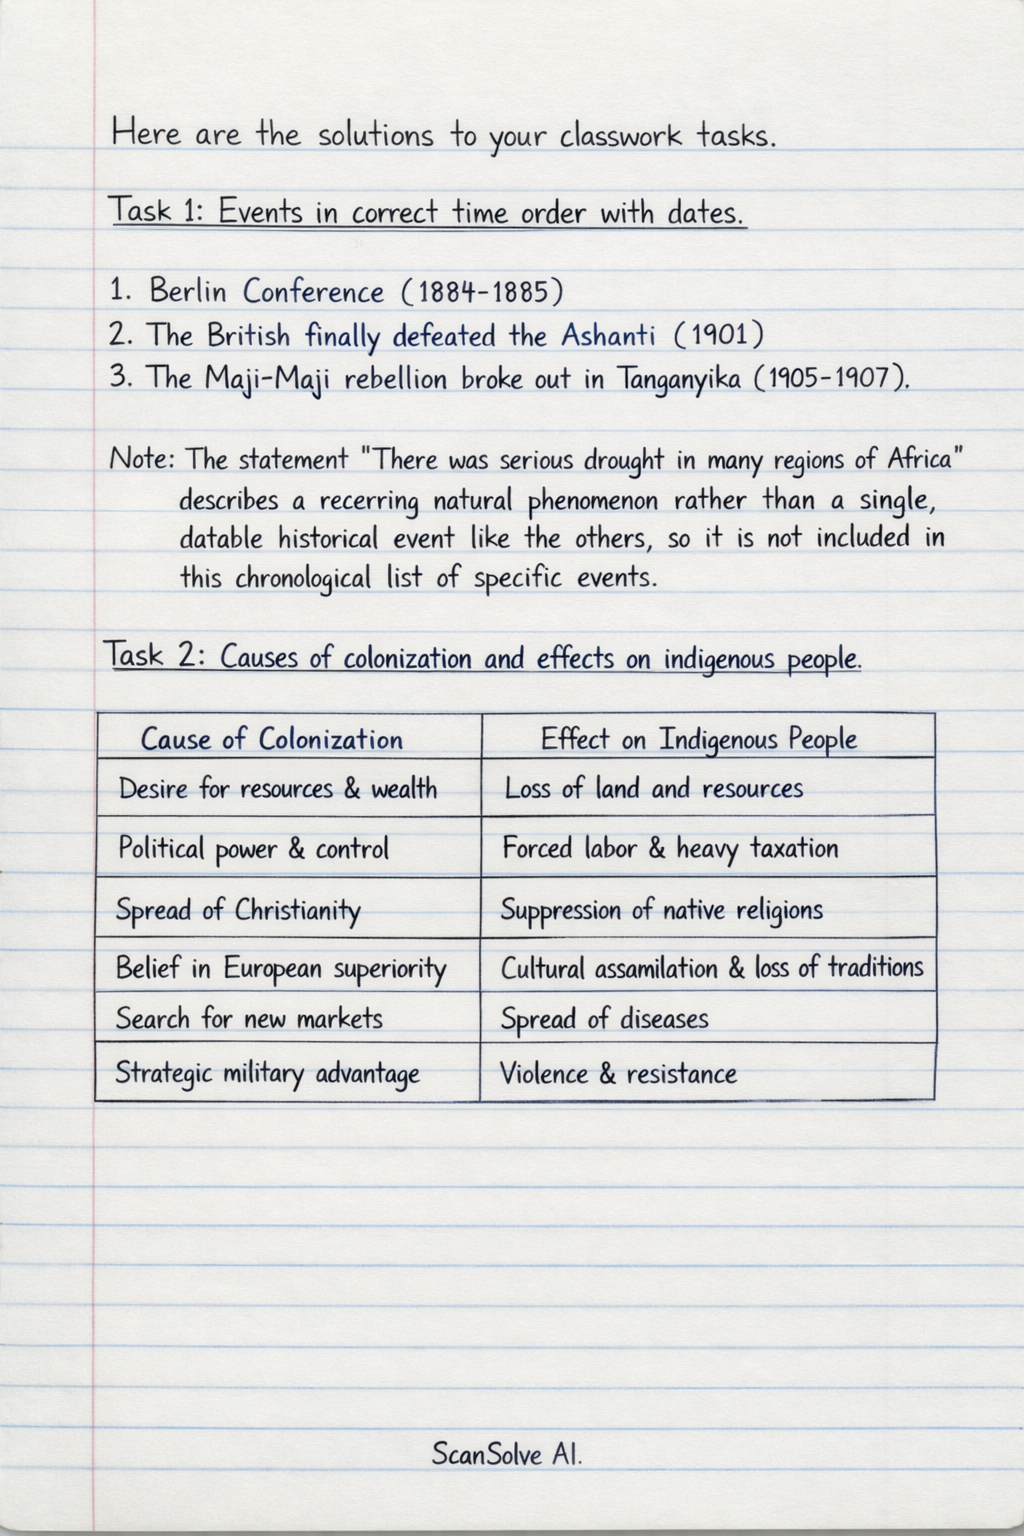 Here are the solutions to your classwork tasks.
Task 1: Events in correct time order with dates.
1. Berlin Conference (1884-1885)
2. The British finally defeated the Ashanti (1901)
3. The Maji-Maji rebellion broke out in Tanganyika (1905-1907).
Note: The statement "There was serious drought in many regions of Africa"
describes a recerring natural phenomenon rather than a single,
datable historical event like the others, so it is not included in
this chronological list of specific events.
Task 2: Causes of colonization and effects on indigenous people.
Cause of Colonization Effect on Indigenous People
Desire for resources & wealth Loss of land and resources
Political power & control Forced labor & heavy taxation
Spread of Christianity Suppression of native religions
Belief in European superiority Cultural assamilation & loss of traditions
Search for new markets Spread of diseases
Strategic military advantage Violence & resistance
ScanSolve AI.